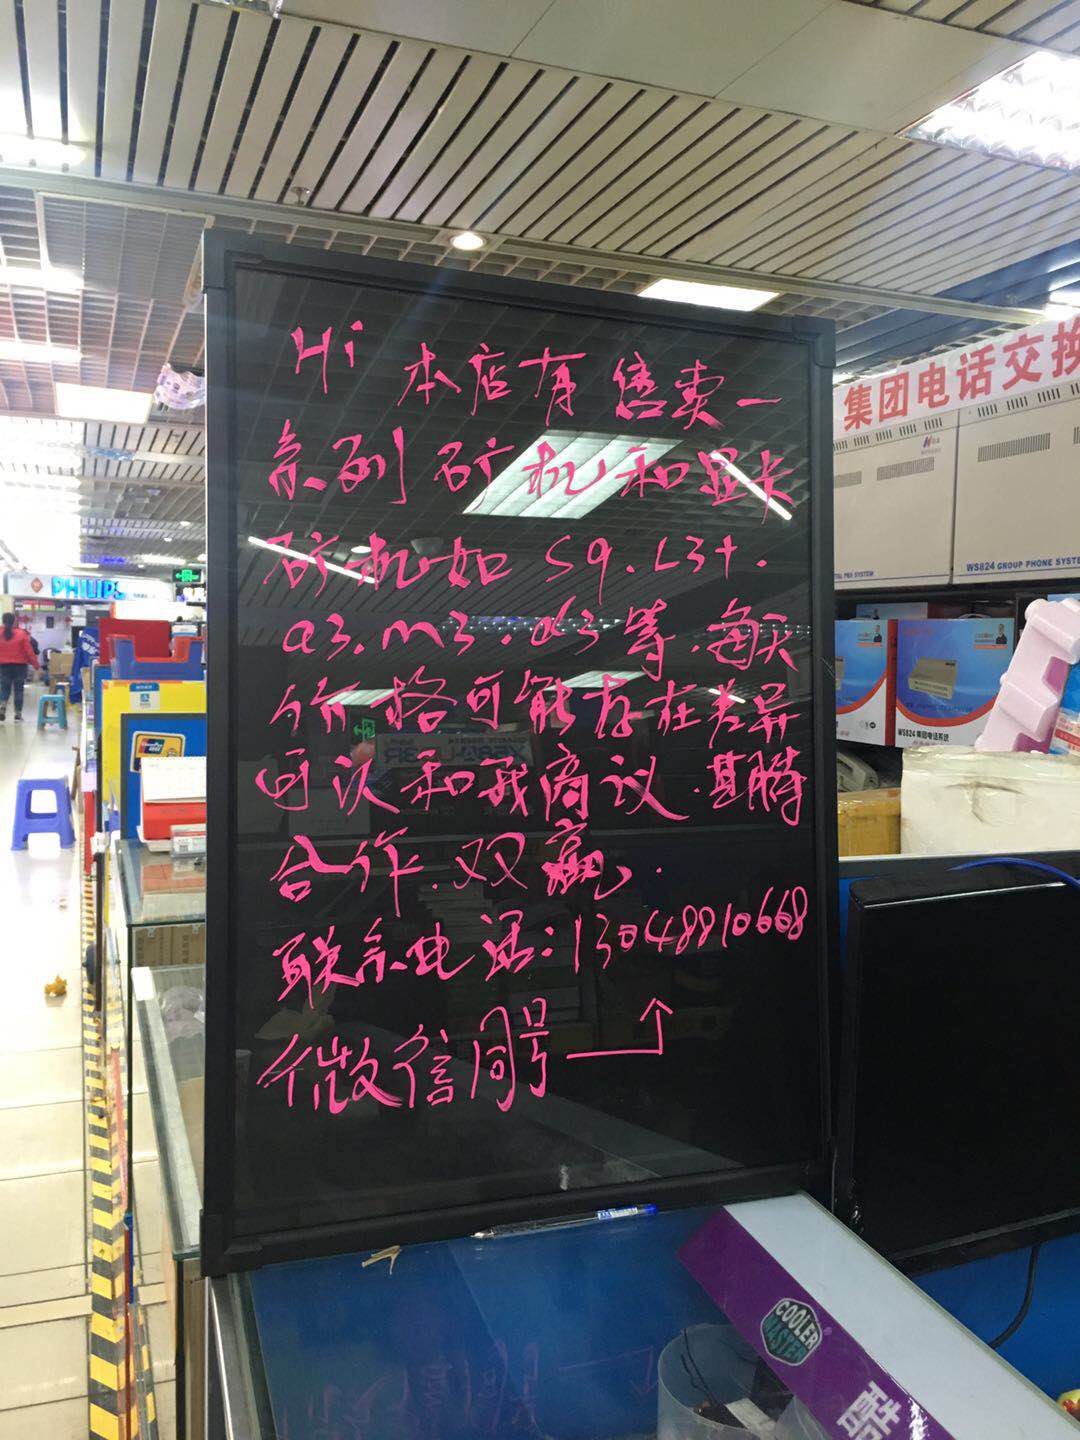 Hi 本店有售卖一
系列矿机和显卡
矿机如 S9.L3+.
a3.m3.d3等.每天
价格可能存在差异
可以和我商议.期待
合作.双赢.
联系电话:13048910668
微信同号
集团电话交换
WS824 GROUP PHONE SYSTE
PHILIPS
WS824集团电话系统
COOLER
MASTER
酷